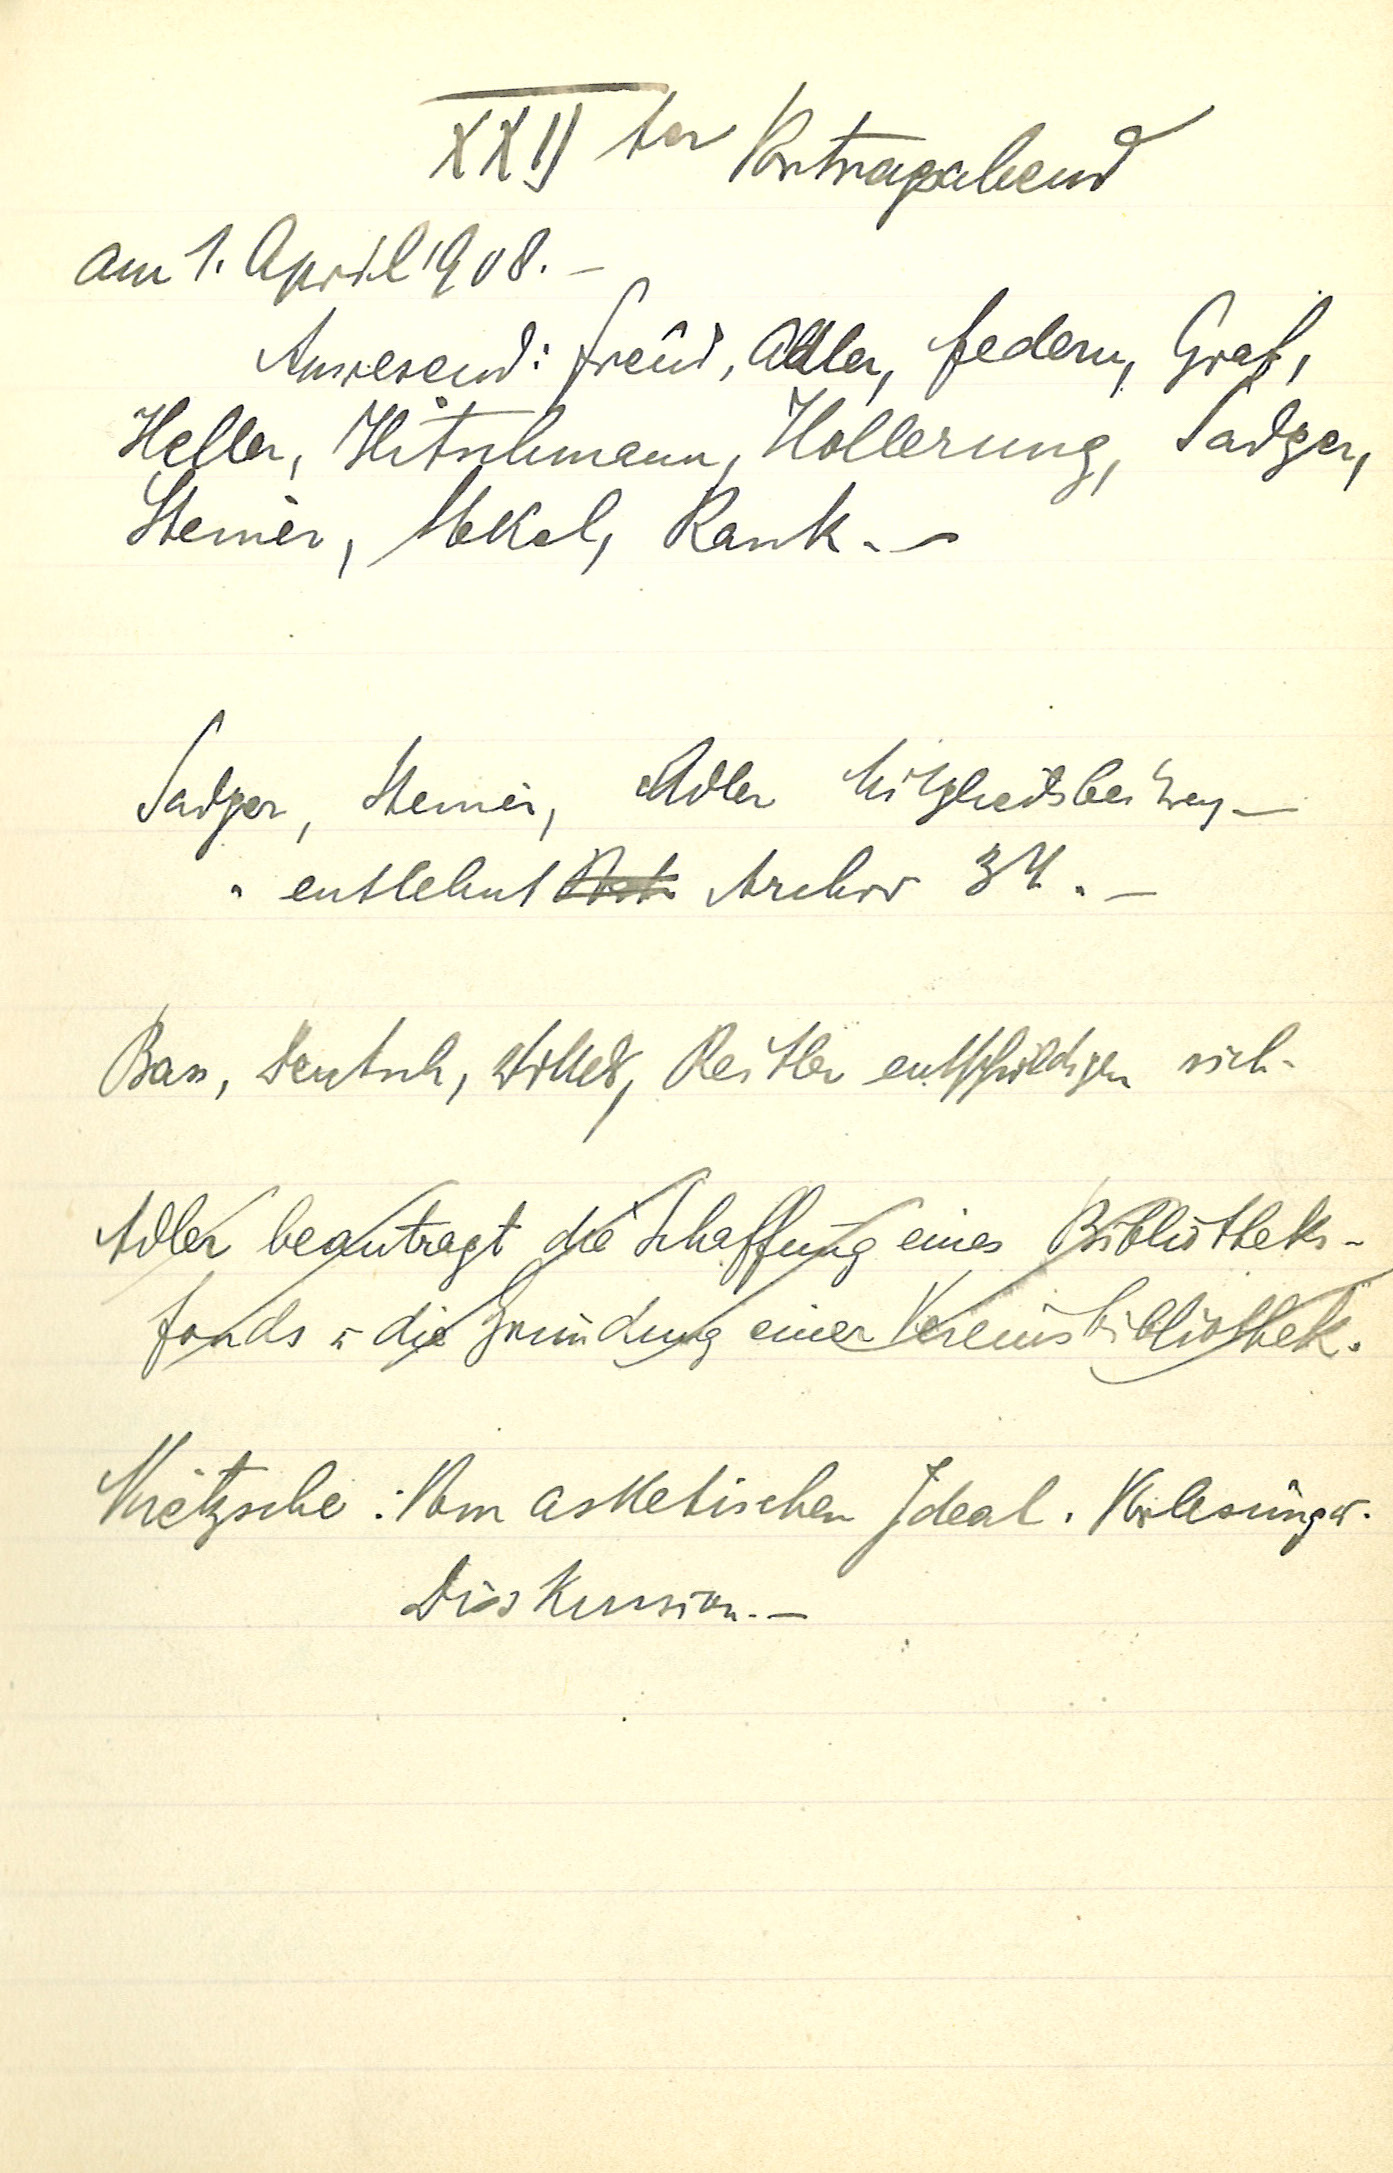 XXII ter Vortragsabend
am 1. April 1908. –
Anwesend: Freud, Adler, Federn, Graf,
Heller, Hitschmann, Hollerung, Sadger,
Steiner, Stekel, Rank. –
Sadger, Steiner, Adler Mitgliedsbeitrag –
" entlehnt Archiv 34. –
Bass, Deutsch, Wittels, Reitler entschuldigen sich.
Adler beantragt die Schaffung eines Bibliotheks-
fonds u. die Gründung einer Vereinsbibliothek.
Nietzsche: Vom asketischen Ideal. Vorlesung u.
Diskussion. –